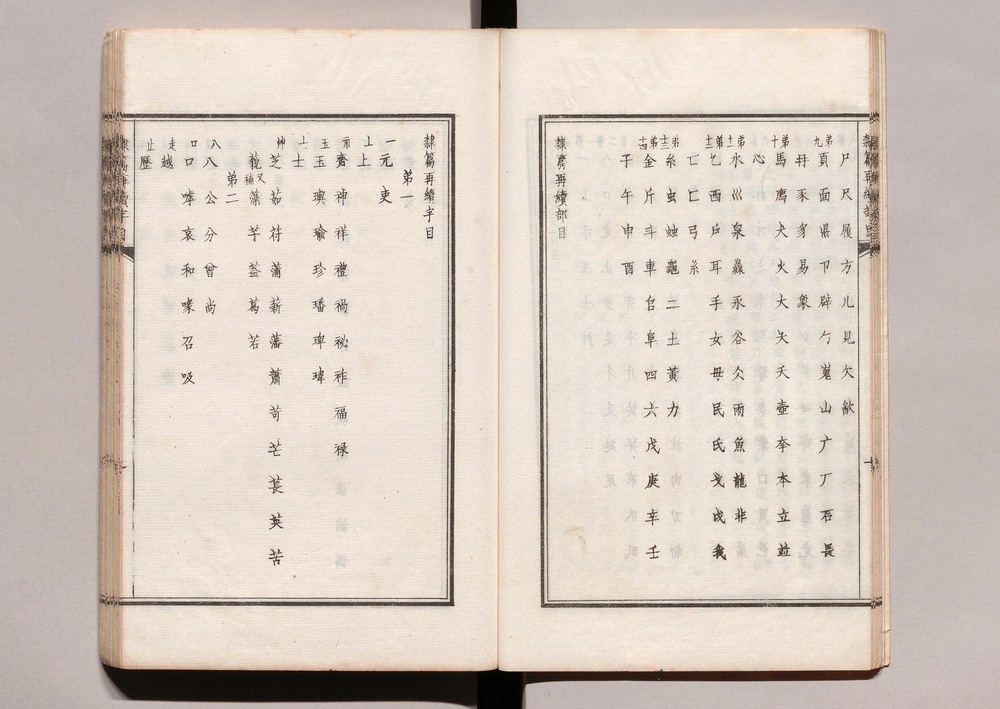 尸尺履方儿見欠㱃
第九頁面県卩辟勹嵬山广厂石長
冄豕豸易象
第十馬廌犬火大夭壺夲本立竝
心
第十一水巛泉灥永谷仌雨魚龍非
第十二乞西戶耳手女毋民氏戈戉我
亡匸弓糸
第十三糸虫䖵龜二土黃力
第十四金片斗車𠂤阜四六戊庚辛壬
子午申酉
隸篇再續部目
隸篇再續字目
第一
一元吏
上上
示齋神祥禮禍祕祚福祿
玉玉璵瑜珍璠琕瑋
士士
艸芝茹苻蒲薪藩蕭苛芒萇英苦
藐又補藻芋葢葛若
第二
八八公分曾尚
口口嘑哀和喙召吸
走越
止歷